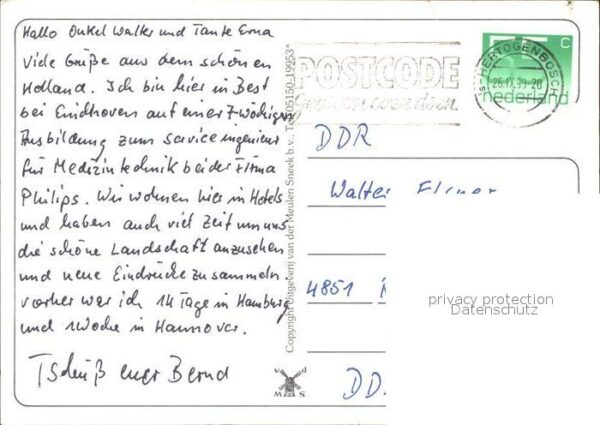 Hallo Onkel Walter und Tante Erna
Viele Grüße aus dem schönen
Holland. Ich bin hier in Best
bei Eindhoven auf einer 7-wöchigen
Ausbildung zum Serviceingenieur
für Medizintechnik bei der Firma
Philips. Wir wohnen hier in Hotels
und haben auch viel Zeit um uns
die schöne Landschaft anzusehen
und neue Eindrücke zu sammeln
vorher war ich 14 Tage in Hamburg
und 1 Woche in Hannover.
Tschüß euer Bernd
Copyright uitgeverij van der Meulen Sneek b.v., Tel. 05150-19953*
v d
M S
POSTCODE
Gewoon even doen.
'S-HERTOGENBOSCH
55 c
nederland
DDR
Walter
4851
DD
privacy protection
Datenschutz